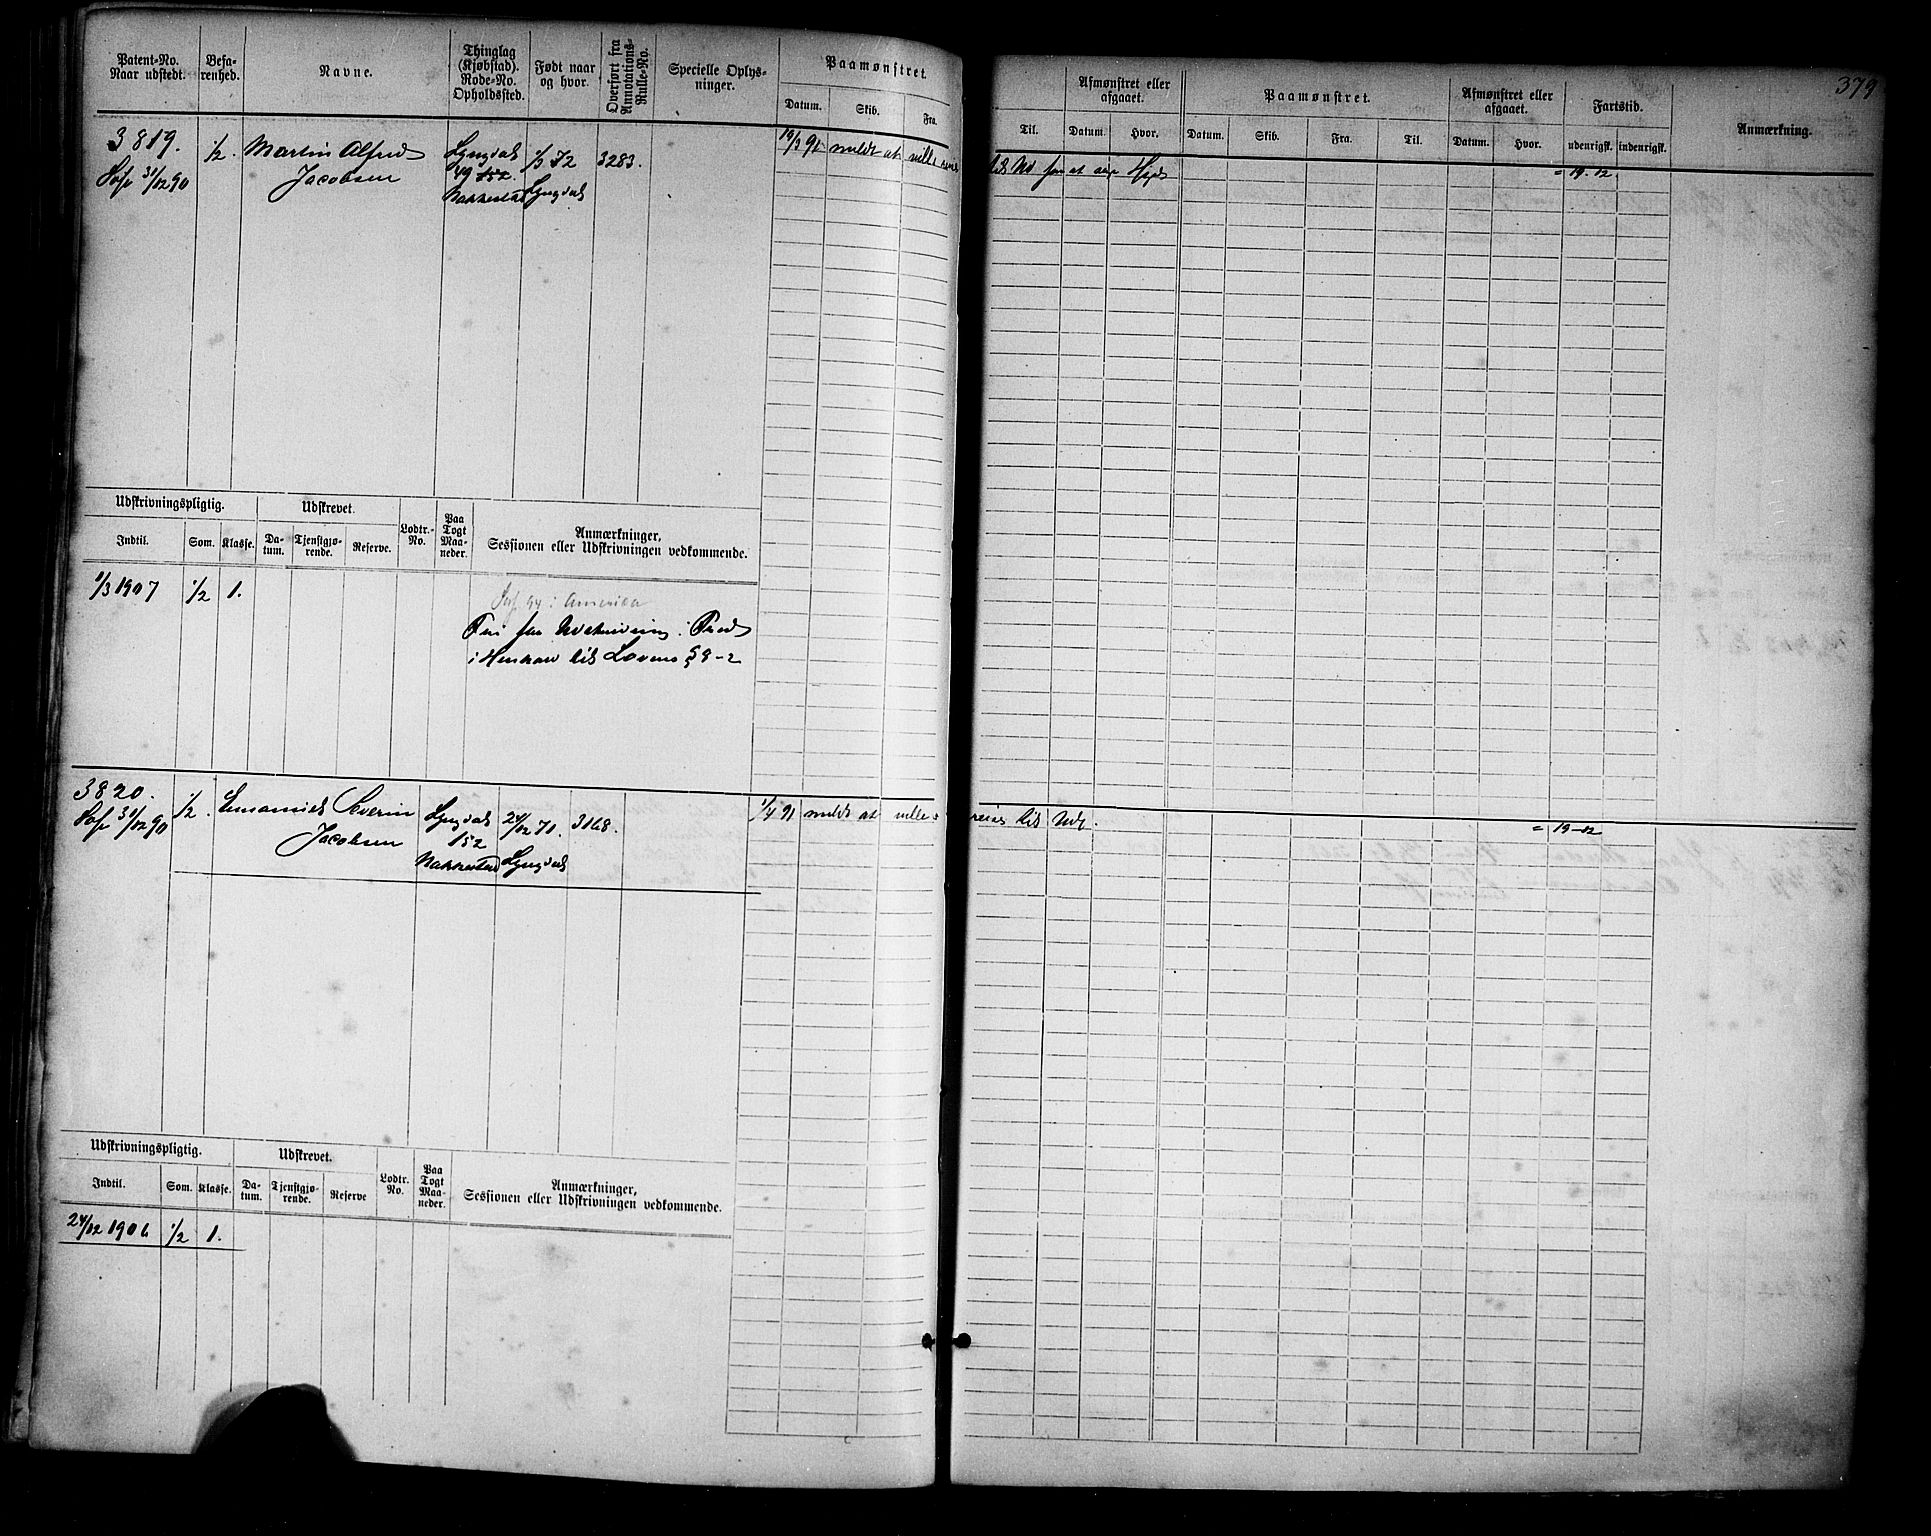 379
Patent-No.
Naar udstedt.
Befa-
renhed.
Navne.
Thinglag
(Kjøbstad).
Rode-No.
Opholdssted.
Født naar
og hvor.
Overført fra
Annotations-
Rulle-No.
Specielle Oplys-
ninger.
Paamønstret.
Datum. Skib. Fra.
Til.
Afmønstret eller
afgaaet.
Datum. Hvor.
Paamønstret.
Datum. Skib. Fra. Til.
Afmønstret eller
afgaaet.
Datum. Hvor.
Fartstid.
udenrigsk. indenrigsk.
Anmærkning.
3819. 1/2. Martin Alfred Lyngdal 1/3 72 3283. 19/3 91 meldt at ville reise til Ud for at søge Hyre = 19-12.
31/12 90 Jacobsen 49 152. Lyngdal
Nakkestad
Udskrivningspligtig. Udskrevet. Lodtr.-
No.
Paa
Togt
Maa-
neder.
Anmærkninger,
Sessionen eller Udskrivningen vedkommende.
Indtil. Som. Klasse. Da-
tum. Tjenstgjø-
rende. Reserve.
1/3 1907 1/2 1. i Amerika
Fri for Udskrivning i Fred
i Henhold til Lovens § 9-2
3820. 1/2. Emanuel Severin Lyngdal 24/12 71. 3168. 1/4 91 meldt at ville reise til Udl. = 19-12
31/12 90 Jacobsen 152 Lyngdal
Nakkestad
Udskrivningspligtig. Udskrevet. Lodtr.
No.
Paa
Togt
Maa-
neder.
Anmærkninger,
Sessionen eller Udskrivningen vedkommende.
Indtil. Som. Klasse. Da-
tum. Tjenstgjø-
rende. Reserve
24/12 1906 1/2 1.